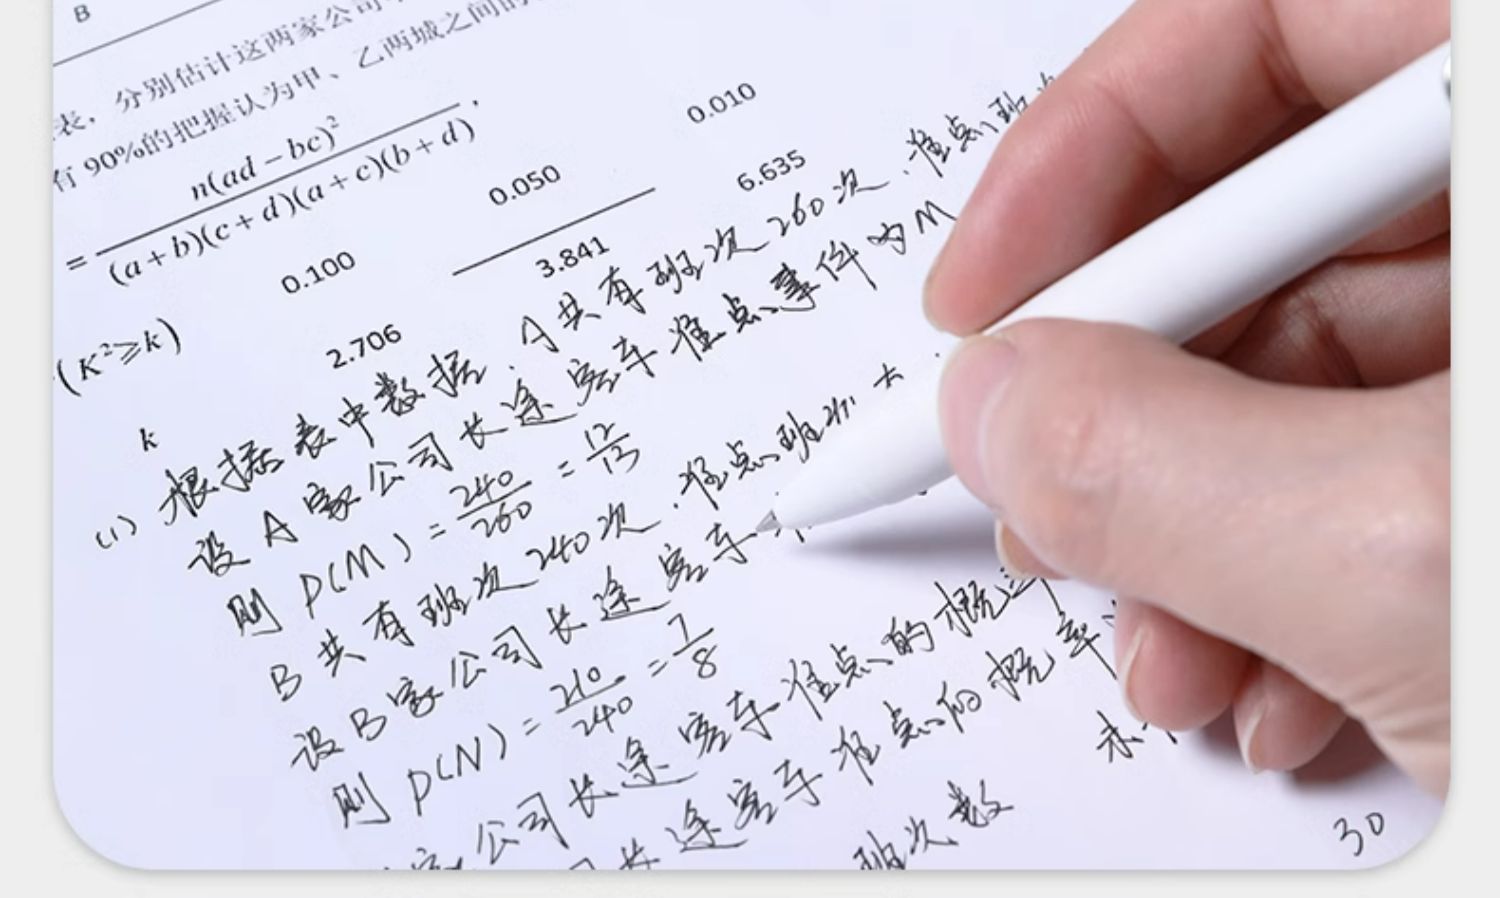 B
表，分别估计这两家公司
有 90%的把握认为甲、乙两城之间的
= n(ad − bc)² / (a + b)(c + d)(a + c)(b + d) ,
(K² ≥ k) 0.100 0.050 0.010
k 2.706 3.841 6.635
(1) 根据表中数据. A共有班次260次. 准点班次
设A家公司长途客车准点事件为M
则 P(M) = 240/260 = 12/13
B共有班次240次. 准点班次
设B家公司长途客车
则 P(N) = 210/240 = 7/8
家公司长途客车准点的概率
司长途客车准点的概率
班次数
30